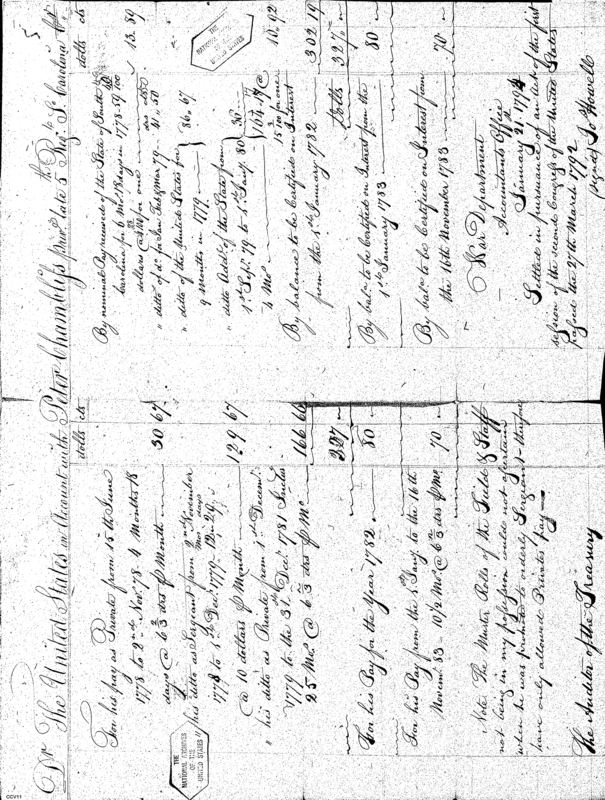 Dr The United States in Account with Peter Chambliss prvt. late 5th Regt. So. Carolina Cr
dolls cts
For his pay as Private from 15th June
1778 to 2nd Novr. 78. 4 Months 18
days @ 6 2/3 drs ⅌ Month 30 67
" his ditto as Sergeant from 2nd November
Mos days
1778 to 1st Decr. 1779 - 12 - 29
@ 10 dollars ⅌ Month 129 67
" his ditto as Private from 1st Decemr.
1779 to the 31st Decr. 1781 Inclus
25 Mos. @ 6 2/3 drs ⅌ Mo. 166 66
327 "
For his Pay for the Year 1782. 80 "
For his Pay from the 1st Jany. to the 16th
Novemr. 83 10 1/2 Mos. @ 6 2/3 drs ⅌ Mo. 70 "
Note. The Muster Rolls of the Field & Staff
not being in my possession could not ascertain
when he was promoted to orderly Sergeant - therefore
have only allowed Privates pay
The Auditor of the Treasury
dolls cts
By nominal Pay records of the State of South
Carolina for 6 Mos. 18 days in 1778
dollars for one 13. 89
" ditto of do. for Jan. Feb & Mar 79
" ditto of the United States for
9 Months in 1779 86, 67
" ditto Addl. of the State from
1st Sepr. 79 to 1st Jany. 80
4 Mos.
15 in one 10, 92
By balance to be Certified on Interest
from the 1st January 1782 302 19
Dolls 327 "
By balce. to be Certified on Interest from the
1st January 1783 80 "
By balce. to be Certified on Interest from
the 16th November 1783 70 "
War Department
Accountants Office
January 21, 1794
Settled in pursuance of an Act of the first
session of the second Congress of the United States
passed the 27th March 1792
(signed) Jo Howell
THE
NATIONAL ARCHIVES
OF THE
UNITED STATES
THE
NATIONAL ARCHIVES
OF THE
UNITED STATES
CCV11